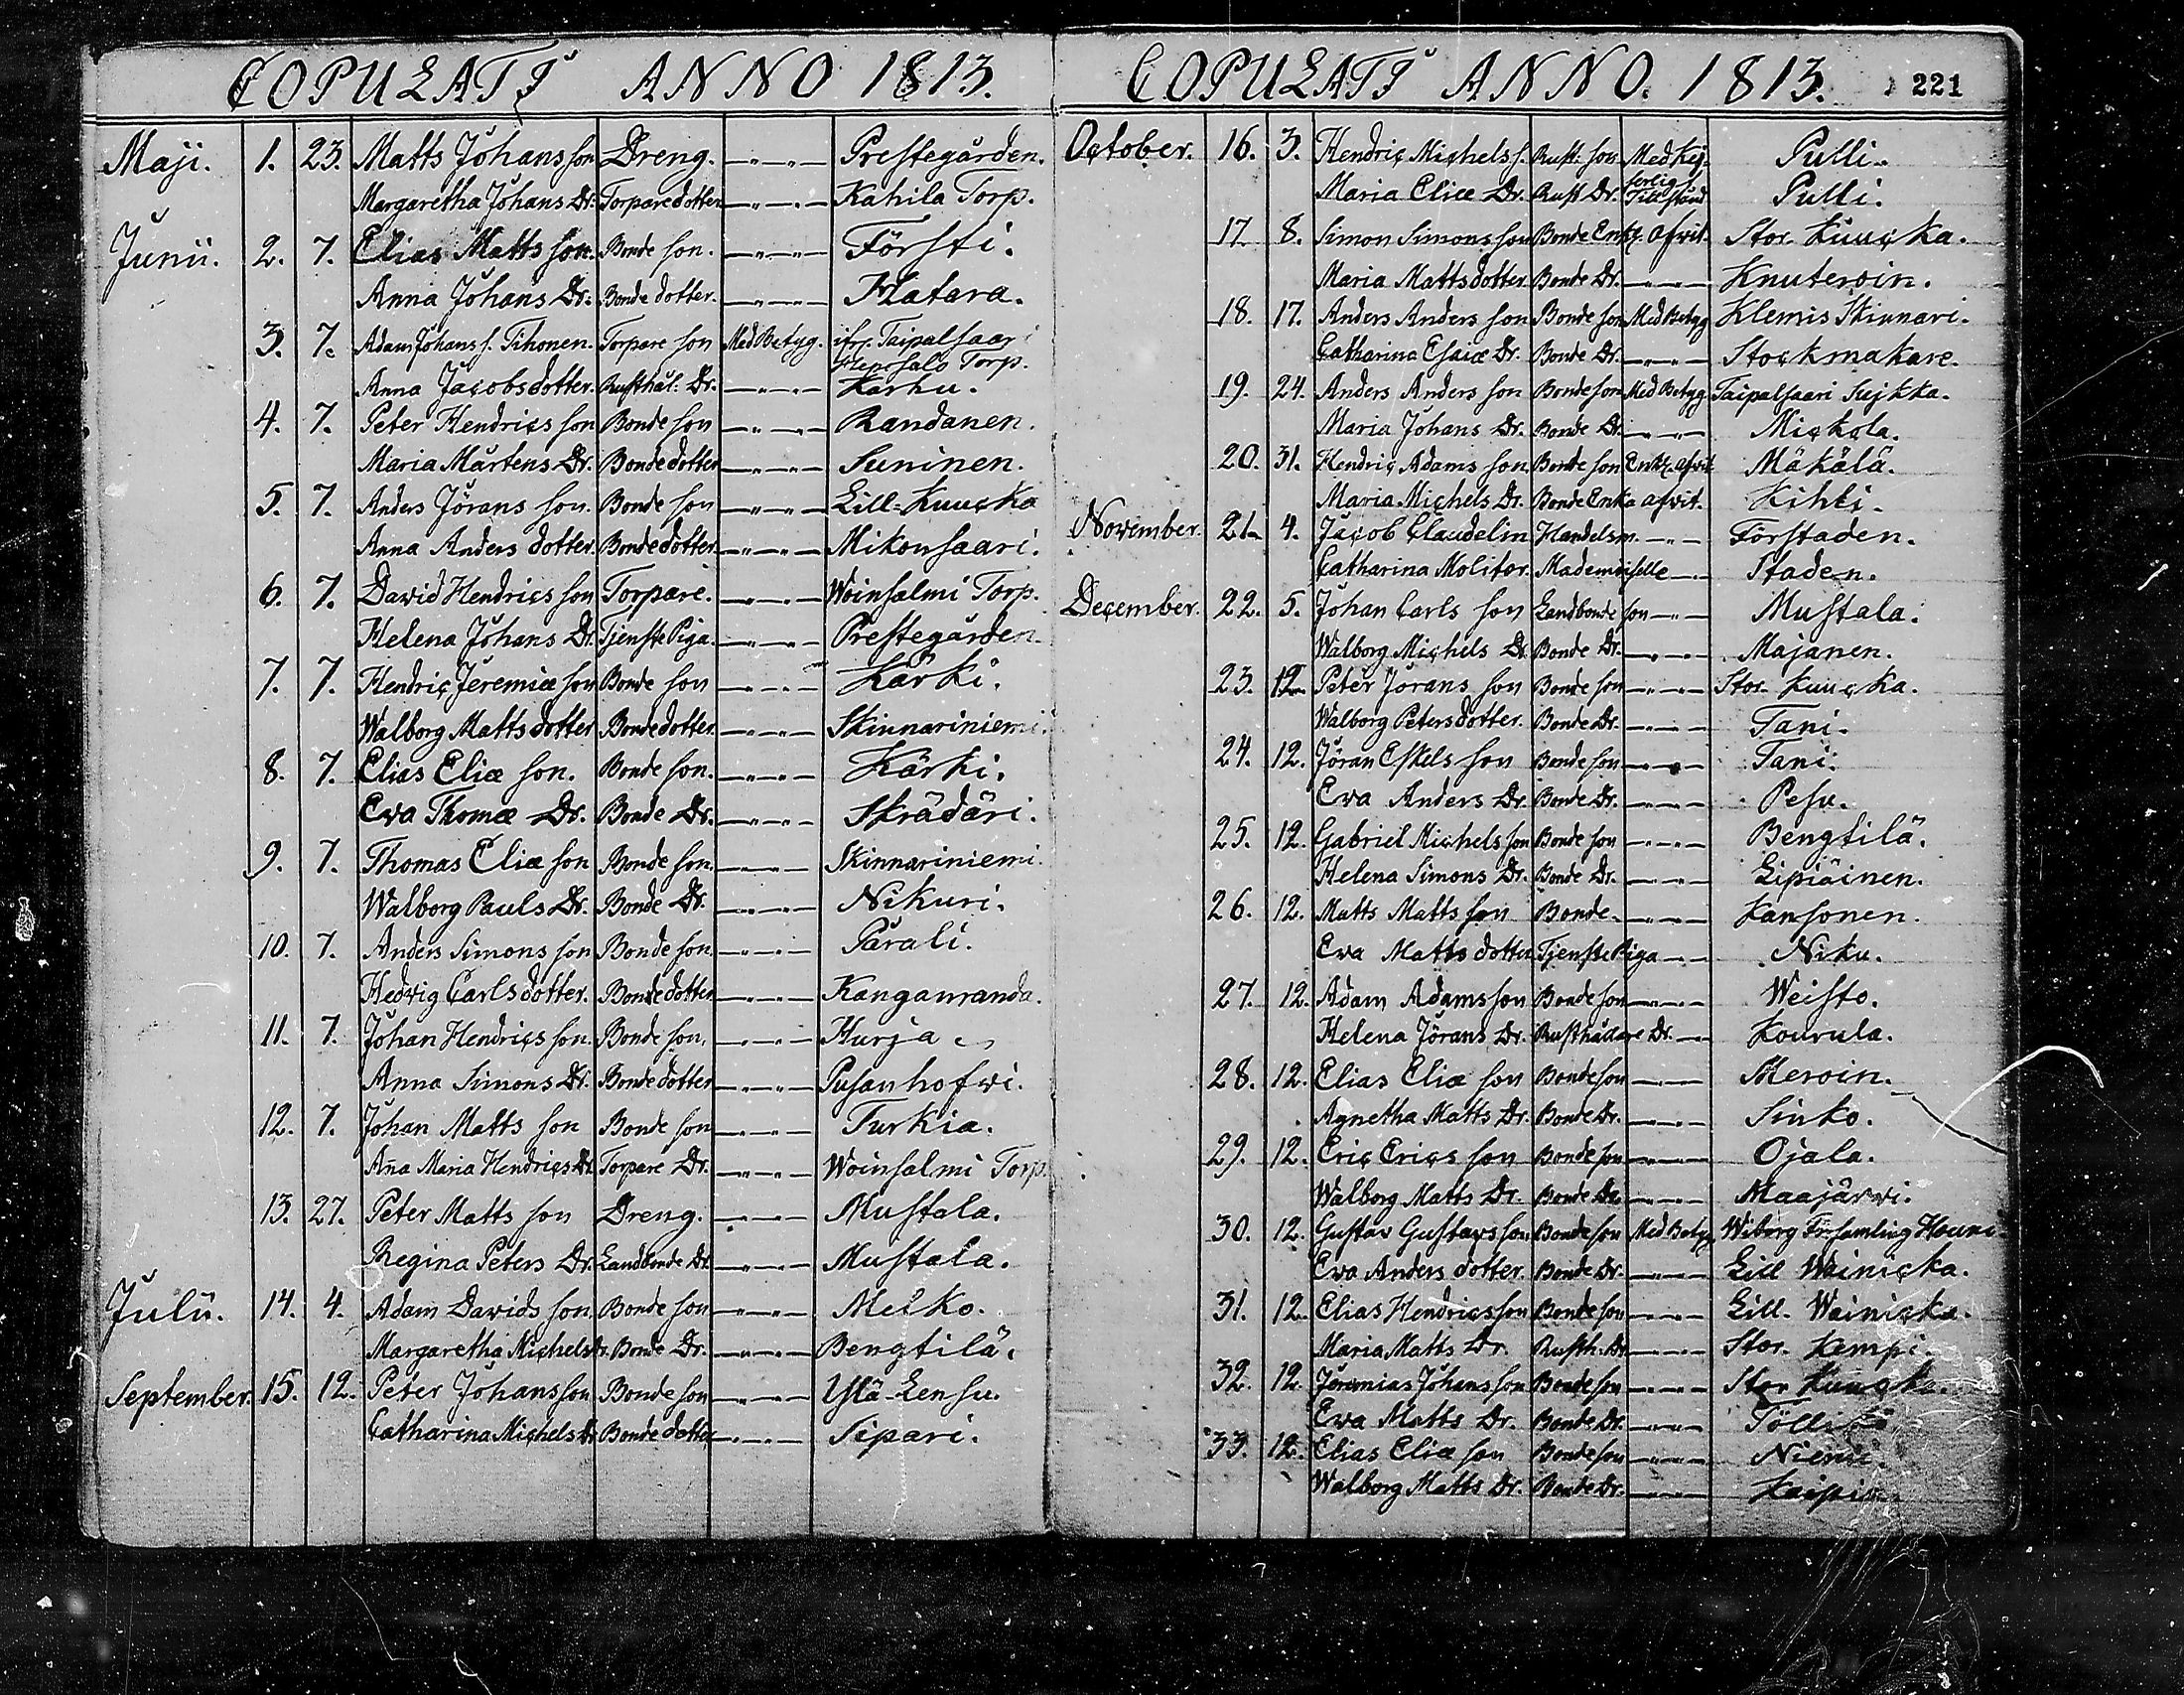 COPULATI ANNO 1813.
Maji. 1. 23. Matts Johans son Dreng. —"—"— Prestegården.
Margaretha Johans Dr. Torpare dotter —"—"— Kahila Torp.
Junii. 2. 7. Elias Matts son. Bonde son. —"—"— Försti.
Anna Johans Dr. Bonde dotter. —"—"— Hatara.
3. 7. Adam Johans s. Tihonen. Torpare son Med Betyg. ifr. Taipalsaari
Torp.
Anna Jacobs dotter. Rusthål. Dr. —"—"— Karhu.
4. 7. Peter Hendrics son Bonde son —"—"— Randanen.
Maria Mårtens Dr. Bonde dotter —"—"— Suninen.
5. 7. Anders Jörans son. Bonde son —"—"— Lill-Kuucka
Anna Anders dotter. Bonde dotter —"—"— Mikonsaari.
6. 7. David Hendrics son Torpare. —"—"— Woinsalmi Torp.
Helena Johans Dr. Tjenste Piga. —"—"— Prestegården.
7. 7. Hendric Jeremiæ son Bonde son —"—"— Kärki.
Walborg Matts dotter Bonde dotter —"—"— Skinnariniemi.
8. 7. Elias Eliæ son. Bonde son. —"—"— Kärki.
Eva Thomæ Dr. Bonde Dr. —"—"— Skrädäri.
9. 7. Thomas Eliæ son Bonde son. —"—"— Skinnariniemi.
Walborg Pauls Dr. Bonde Dr. —"—"— Nikuri.
10. 7. Anders Simons son Bonde son. —"—"— Parali.
Hedvig Carls dotter. Bonde dotter —"—"— Kangasranda.
11. 7. Johan Hendrics son. Bonde son. —"—"— Hurja
Anna Simons Dr. Bonde dotter —"—"— Pusanhofwi.
12. 7. Johan Matts son Bonde son —"—"— Turkia.
Ana Maria Hendrics Dr. Torpare Dr. —"—"— Woinsalmi Torp.
13. 27. Peter Matts son Dreng. —"—"— Mustala.
Regina Peters Dr. Landbonde Dr. —"—"— Mustala.
Julii. 14. 4. Adam Davids son. Bonde son —"—"— Melko.
Margaretha Michels Dr. Bonde Dr. —"—"— Bengtilä.
September. 15. 12. Peter Johans son Bonde son —"—"— Ylä-Lensu.
Catharina Michels Dr. Bonde dotter —"—"— Sipari.
COPULATI ANNO. 1813. 221
October. 16. 3. Hendric Michels s. Rust. son Med Kej- Pulli.
serlig
Maria Eliæ Dr. Rust Dr. Tillstånd Pulli.
17 8. Simon Simons son Bonde Enkl. afvit. Stor. Kuucka.
Maria Matts dotter Bonde Dr. —"—"— Knuteroin.
18. 17. Anders Anders son Bonde son Med Betyg Klemis Skinnari.
Catharina Esaiæ Dr. Bonde Dr. —"—"— Stockmakare.
19. 24. Anders Anders son Bonde son Med Betyg Taipalsaari Suikka.
Maria Johans Dr. Bonde Dr. —"—"— Mickola.
20. 31. Hendric Adams son. Bonde son Enkl. afvit Mäkälä.
Maria Michels Dr. Bonde Enka afvit. Kihli.
November. 21. 4. Jacob Claudelin Handelsm. —"— Förstaden.
Catharina Molitor. Mademoiselle —"— Staden.
December. 22. 5. Johan Carls son Landbonde son —"— Mustala.
Walborg Michels Dr. Bonde Dr. —"—"— Majanen.
23. 12. Peter Jörans son Bonde son —"—"— Stor. Kuucka.
Walborg Peters dotter. Bonde Dr. —"—"— Tani.
24. 12. Jöran Eskels son Bonde son —"—"— Tani.
Eva Anders Dr. Bonde Dr. —"—"— Pesu.
25. 12. Gabriel Michels son Bonde son —"—"— Bengtilä.
Helena Simons Dr. Bonde Dr. —"—"— Lipiäinen.
26. 12. Matts Matts son Bonde. —"—"— Kansonen.
Eva Matts dotter Tjenste Piga —"— Niku.
27. 12. Adam Adams son Bonde son —"—"— Weisto.
Helena Jörans Dr. Rusthållare Dr. —"— Kourula.
28. 12. Elias Eliæ son Bonde son —"—"— Meroin.
Agnetha Matts Dr. Bonde Dr. —"—"— Sinko.
29. 12. Eric Erics son Bonde son —"—"— Ojala.
Walborg Matts Dr. Bonde Dr. —"—"— Maajärvi.
30. 12. Gustav Gustavs son Bonde son Med Betyg Wiborg Församling
Eva Anders dotter. Bonde Dr. —"—"— Lill Wainicka.
31. 12. Elias Hendrics son Bonde son —"—"— Lill. Wainicka.
Maria Matts Dr. Rusth. Dr. —"—"— Stor. Kempi.
32. 12. Jeremias Johans son Bonde son —"—"— Stor Kuucka.
Eva Matts Dr. Bonde Dr. —"—"—
33. 12. Elias Eliæ son Bonde son —"—"— Niemi.
Walborg Matts Dr. Bonde Dr. —"—"—